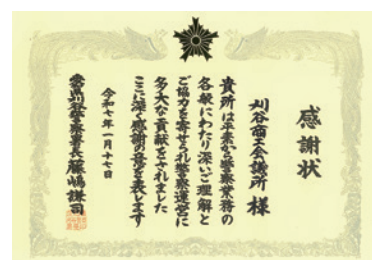 感謝状
刈谷商工会議所 様
貴所は平素から警察業務の
各般にわたり深いご理解と
ご協力を寄せられ警察運営に
多大な貢献をされました
ここに深く感謝の意を表します
令和七年一月十七日
愛知県刈谷警察署長 藤嶋謙司